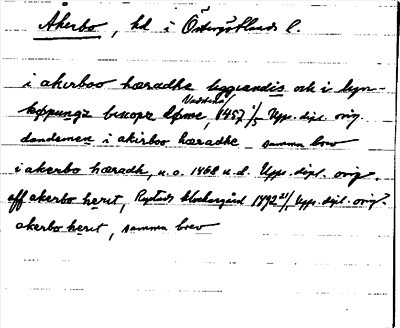 Åkerbo, hd i Östergötlands l.
i akerboo hæradhe liggiandis ok i lyn-
køpungx biscops døme, Vadstena 1457 1/5 Upps. dipl. orig.
dandemen i akirboo hæradhe samma brev
i akerbo hæradh, u.o. 1468 u.d. Upps. dipl. orig.
aff akerbo heret, Rystads klockargård 1492 21/1 Upps. dipl. orig.
akerbo heret, samma brev